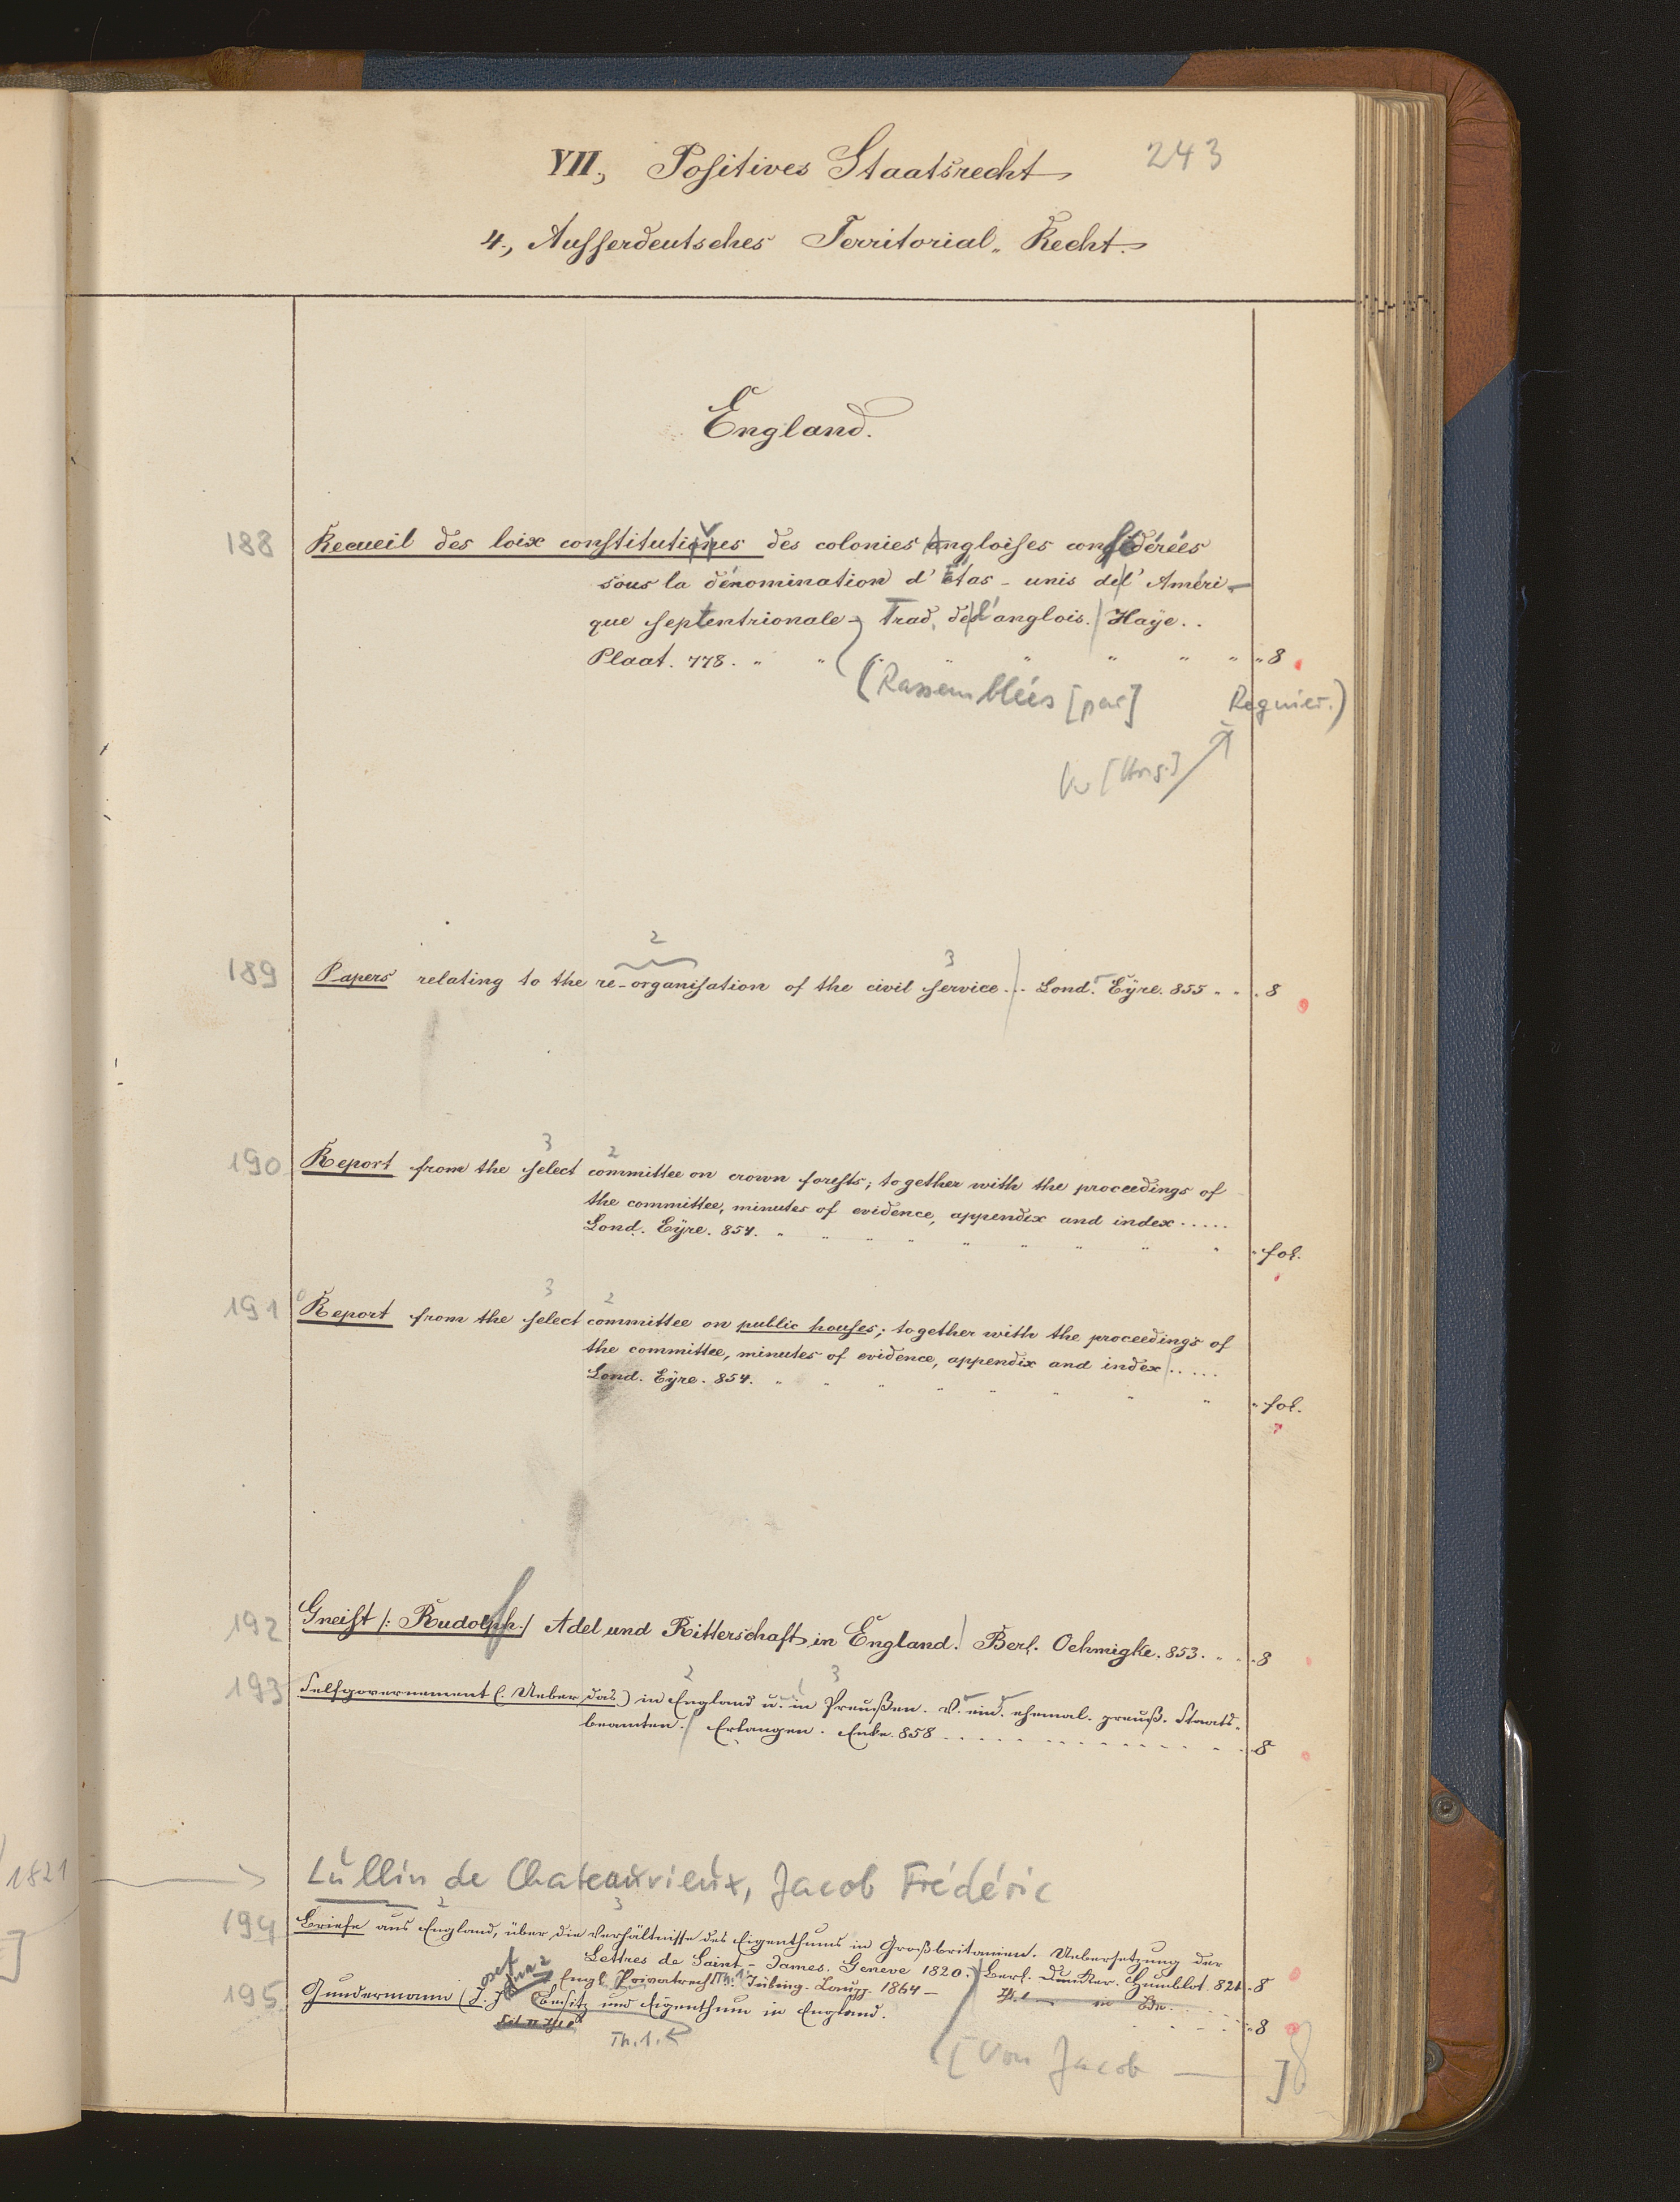 VII., Positives Staatsrecht 243
4., Ausserdeutsches Territorial-Recht.
England.
188 Recueil des loix constitutives des colonies angloises confédérées
sous la dénomination d'Etas-unis de l'Améri-
que septentrionale. Trad. de l'anglois. Haÿe..
Plaat. 778. 8
(Rassemblées [par] Regnier.)
189 Papers relating to the re-organisation of the civil service... Lond. Eÿre. 855 8
2 3
190 Report from the select committee on crown forests; together with the proceedings of
3 2
the committee, minutes of evidence, appendix and index.....
Lond. Eÿre. 854. fol.
191 Report from the select committee on public houses; together with the proceedings of
3 2
the committee, minutes of evidence, appendix and index.....
Lond. Eÿre. 854. fol.
192 Gneist /: Rudolph./ Adel und Ritterschaft in England. Berl. Oehmigke. 853. 8
193 Selfgovernement (: Ueber das) in England u. in Preußen. V. ein. ehemal. preuß. Staats-
2 3
beamten. Erlangen. Enke. 858 8
1821
Lullin de Chateauvieux, Jacob Frédéric
194 Briefe aus England, über die Verhältnisse des Eigenthums in Großbritanien. Uebersetzung der
2 3
Lettres de Saint-James. Geneve 1820. Berl. Duncker. Humblot. 821. 8
Engl. Privatrecht Th. 1. Tübing. Laupp. 1864 –
195 Gundermann (J. J. Besitz und Eigenthum in England. 8
Th. 1.
[Von Jacob — ] 8